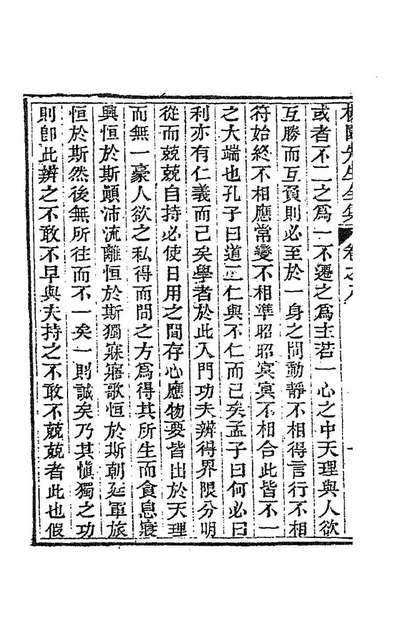 先生全集 卷之八
或者不二之爲一不遷之爲主若一心之中天理與人欲
互勝而互負則必至於一身之間動靜不相得言行不相
符始終不相應常變不相準昭昭㝠㝠不相合此皆不一
之大端也孔子曰道二仁與不仁而已矣孟子曰何必曰
利亦有仁義而已矣學者於此入門功夫辨得界限分明
從而兢兢自持必使日用之間存心應物要皆出於天理
而無一豪人欲之私得而間之方爲得其所生而食息寢
興恒於斯顚沛流離恒於斯獨寐寤歌恒於斯朝廷軍旅
恒於斯然後無所往而不一矣一則誠矣乃其愼獨之功
則卽此辨之不敢不早與夫持之不敢不兢兢者此也假